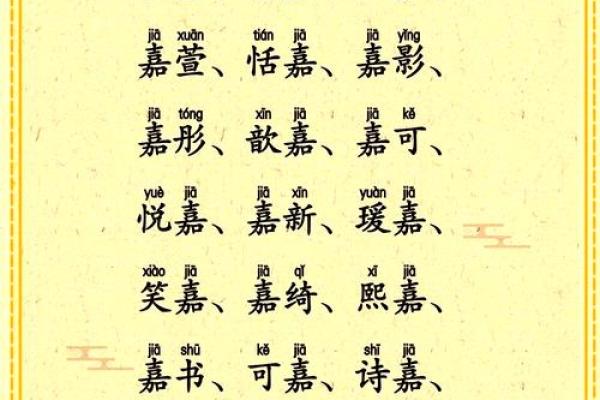 jiā xuān tián jiā jiā yǐng
嘉萱、恬嘉、嘉影、
jiā tóng xīn jiā jiā kě
嘉彤、歆嘉、嘉可、
yuè jiā jiā xīn yuàn jiā
悦嘉、嘉新、瑗嘉、
xiào jiā jiā qǐ xī jiā
笑嘉、嘉绮、熙嘉、
jiā shū kě jiā shī jiā
嘉书、可嘉、诗嘉、